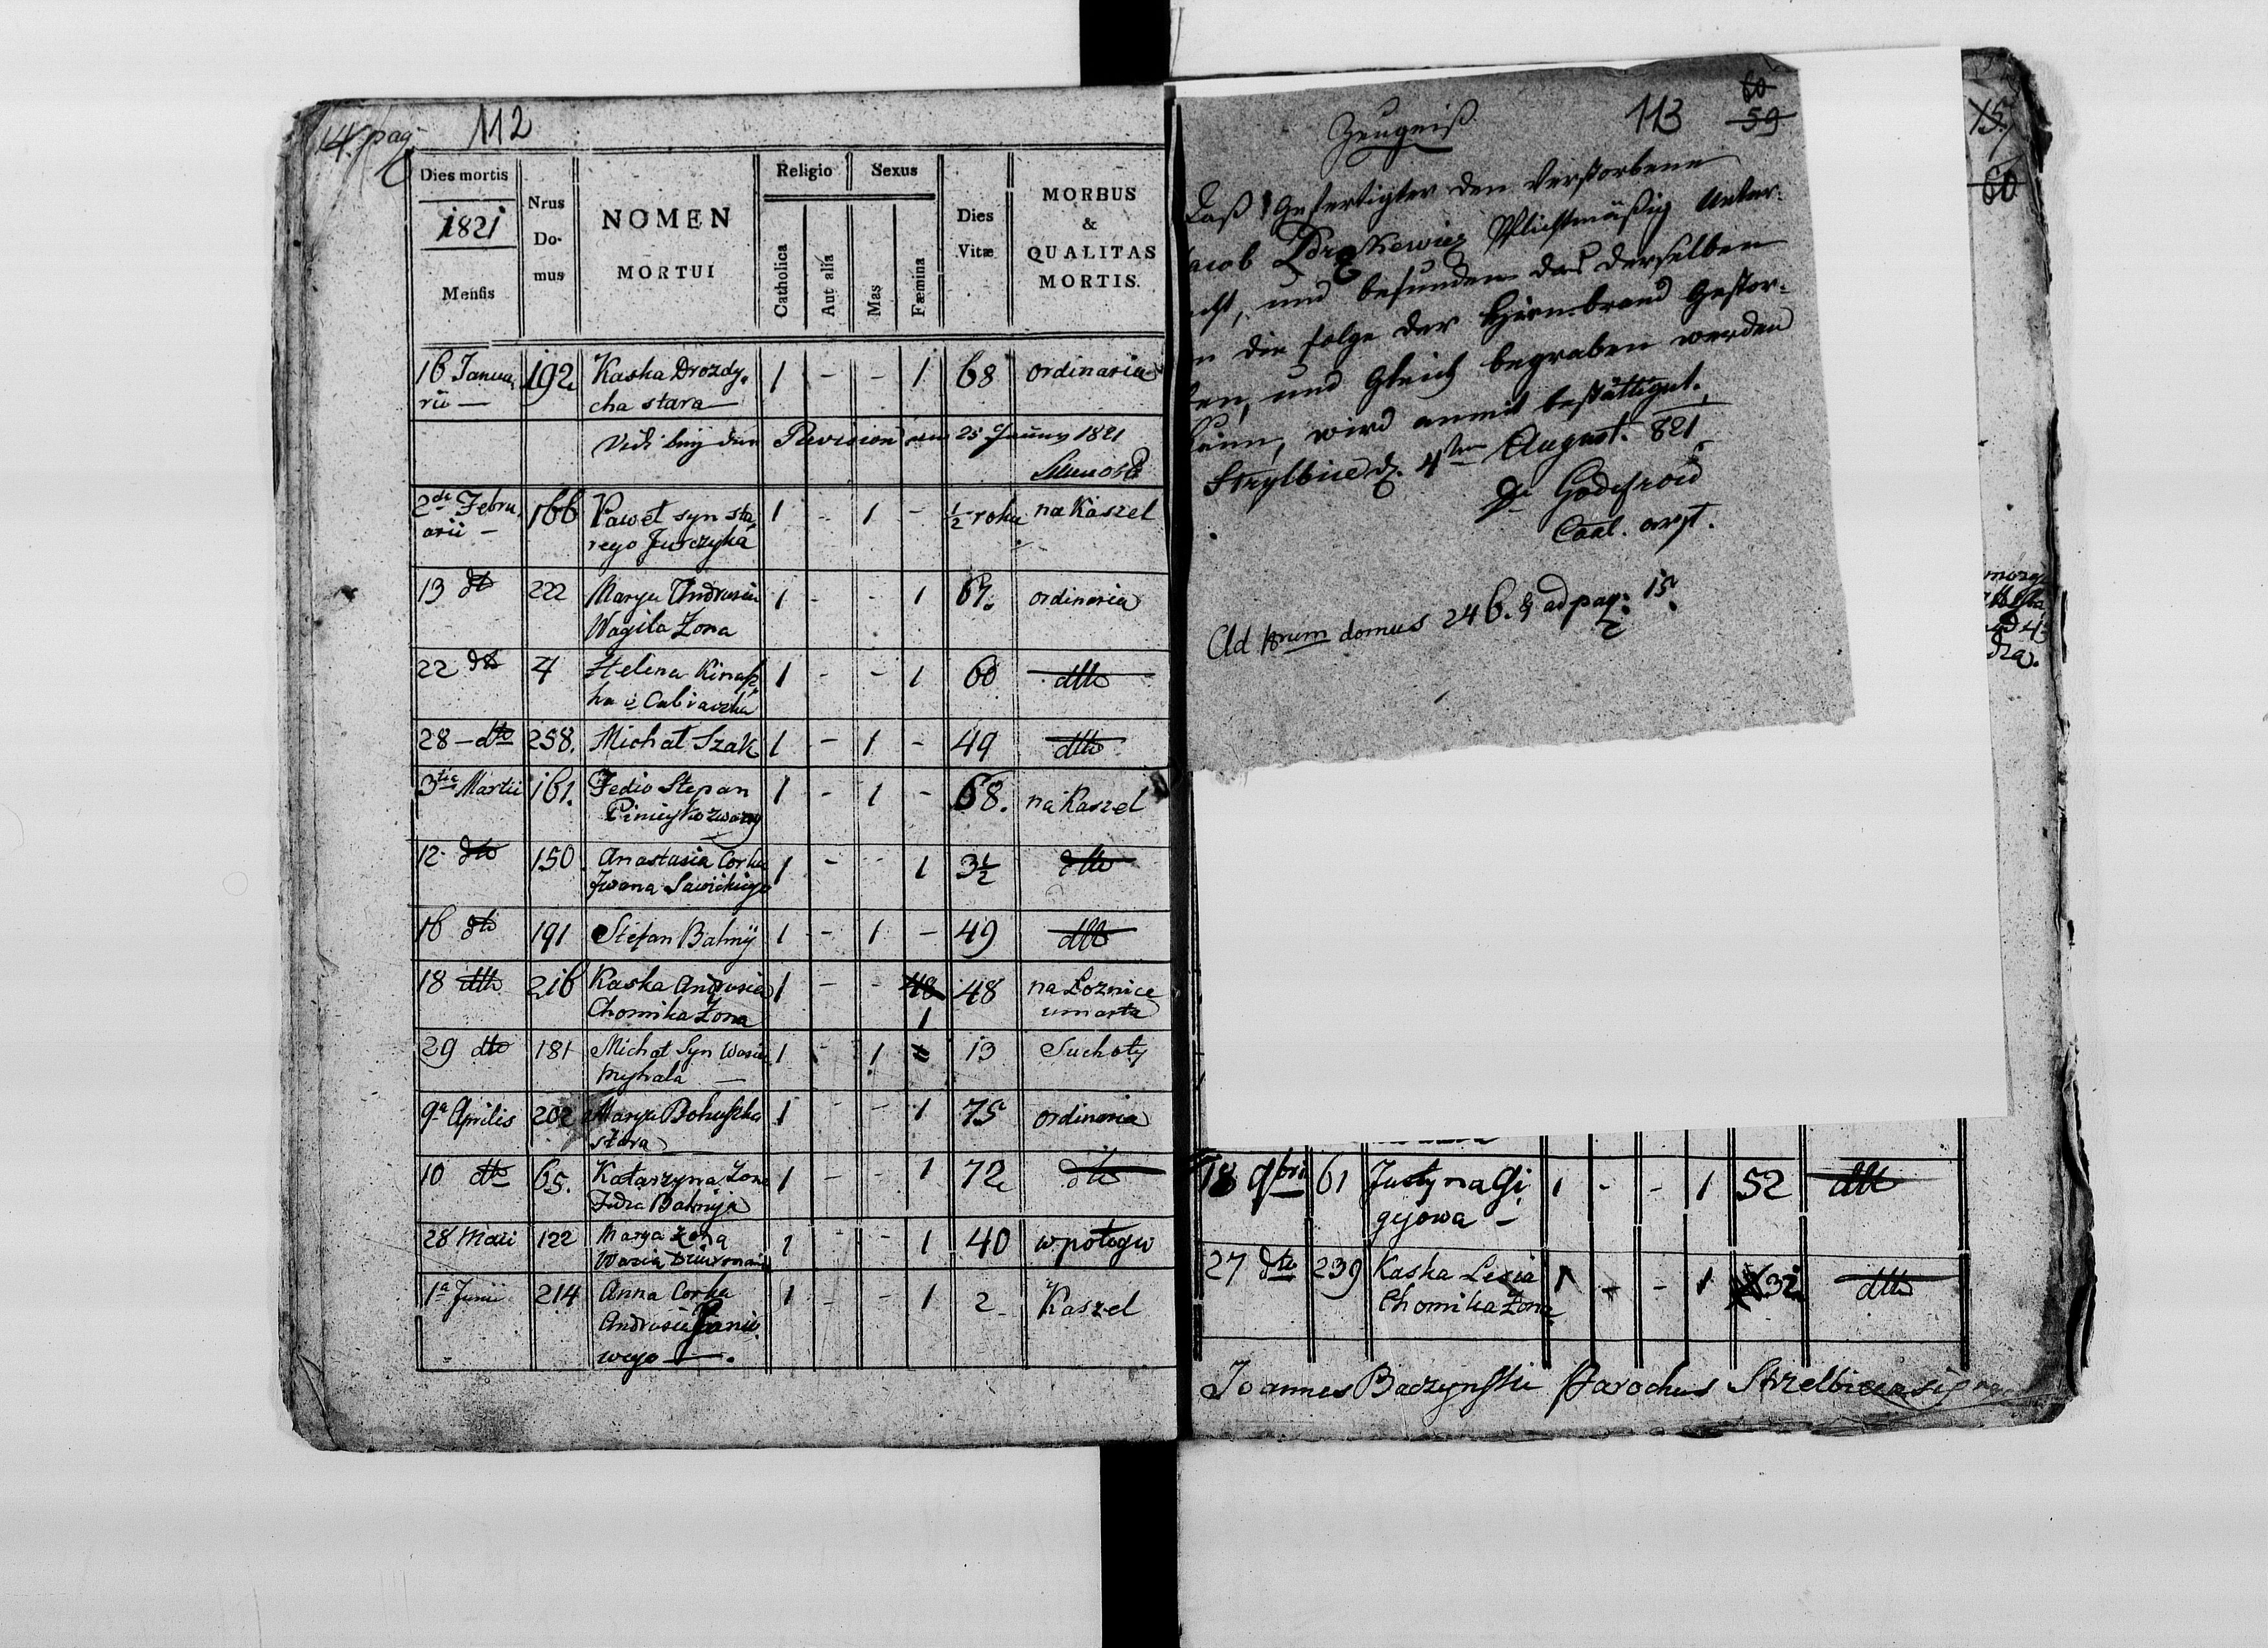 14. pag. 112
Dies mortis
1821
Mensis
Nrus
Do-
mus
NOMEN
MORTUI
Religio
Catholica
Aut alia
Sexus
Mas
Fæmina
Dies
Vitæ
MORBUS
&
QUALITAS
MORTIS.
16 Janua 192 Kasha Drozdy 1 - - 1 68 ordinaria
rii — cha stara —
Revision 25 1821
2da Febru 166 Paweł syn sta 1 - 1 - ½ roku na Kaszel
arii — rego Jurczyka
13 dto 222 Marya Andrusia 1 - - 1 67. ordinaria
Wagila Zona
22 dto 4 Helena 1 - - 1 60 dtto
28 — dto 258. Michał Szak 1 - 1 - 49 dtto
3tia Martii 161. Fedio Stepan 1 - 1 - 68. na Kaszel
12 dto 150 Anastasia Corka 1 - - 1 3½ dtto
Jwana Sawickiego
16 dto 191 Stefan Balnij 1 - 1 - 49 dtto
18 dtto 216 Kasha Andrusia 1 - - 48 48 na Łoznice
Chomika Zona 1 umarła
29 dto 181 Michał Syn Wasia 1 - 1 13 Suchoty
—
9a Aprilis 202 Marya 1 - - 1 75 ordinaria
stara
10 dto 65. Katarzyna Zona 1 - - 1 72 dto
Balnija
28 Maii 122 Marya Zona 1 - - 1 40 w połogu
Wasia
1a Junii 214 Anna Corka 1 - - 1 2 Kaszel
Andrusia
wego — .
Zeugniß 113 60
59
Daß Gefertigter den Verstorbene
acob Pflichtmäßig Unter-
cht, und befunden das derselben
n die folge der Hirnbrand Gestor-
en, und Gleich begraben werden
kann, wird anmit bestättiget.
Strylbice d. 4ten August. 821
Godefroid
Ad Nrum domus 246. & ad pag. 15.
15.
60
18 9bri 61 Justyna Gi 1 - - 1 52 dtt
gijowa —
27 dto 239 Kasha Lesia 1 - - 1 32 dtto
Chomika Zona
Joannes Baczynski Parochus